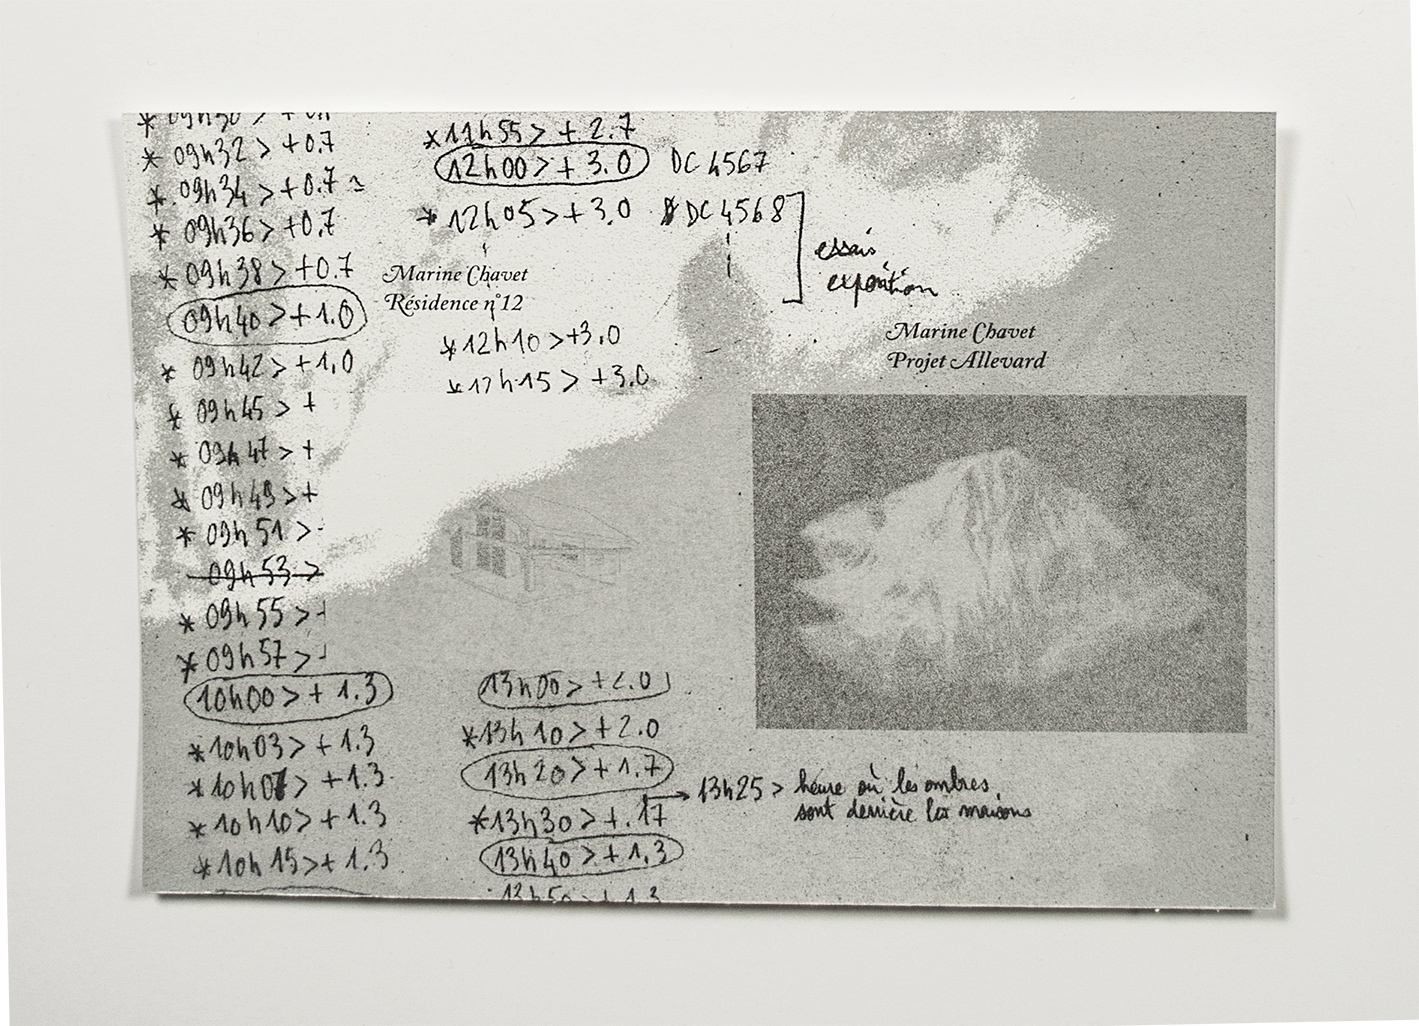 * 09h30 >
* 09h32 > +0.7
* 09h34 > +0.7 ~
* 09h36 > +0.7
* 09h38 > +0.7
09h40 > +1.0
* 09h42 > +1.0
* 09h45 > +
* 09h47 > +
* 09h49 > +
* 09h51 >
09h53 >
* 09h55 >
* 09h57 >
10h00 > + 1.3
* 10h03 > + 1.3
* 10h07 > + 1.3
* 10h10 > + 1.3
* 10h15 > + 1.3
* 11h55 > + 2.7
12h00 > + 3.0 DC 4567
* 12h05 > + 3.0 DC 4568
essais
exposition
Marine Chavet
Résidence n°12
* 12h10 > +3.0
* 12h15 > +3.0
Marine Chavet
Projet Allevard
13h00 > +2.0
* 13h10 > + 2.0
13h20 > + 1.7
13h25 > heure où les ombres
sont derrière les maisons
* 13h30 > +.17
13h40 > + 1.3
13h50 > + 1.3